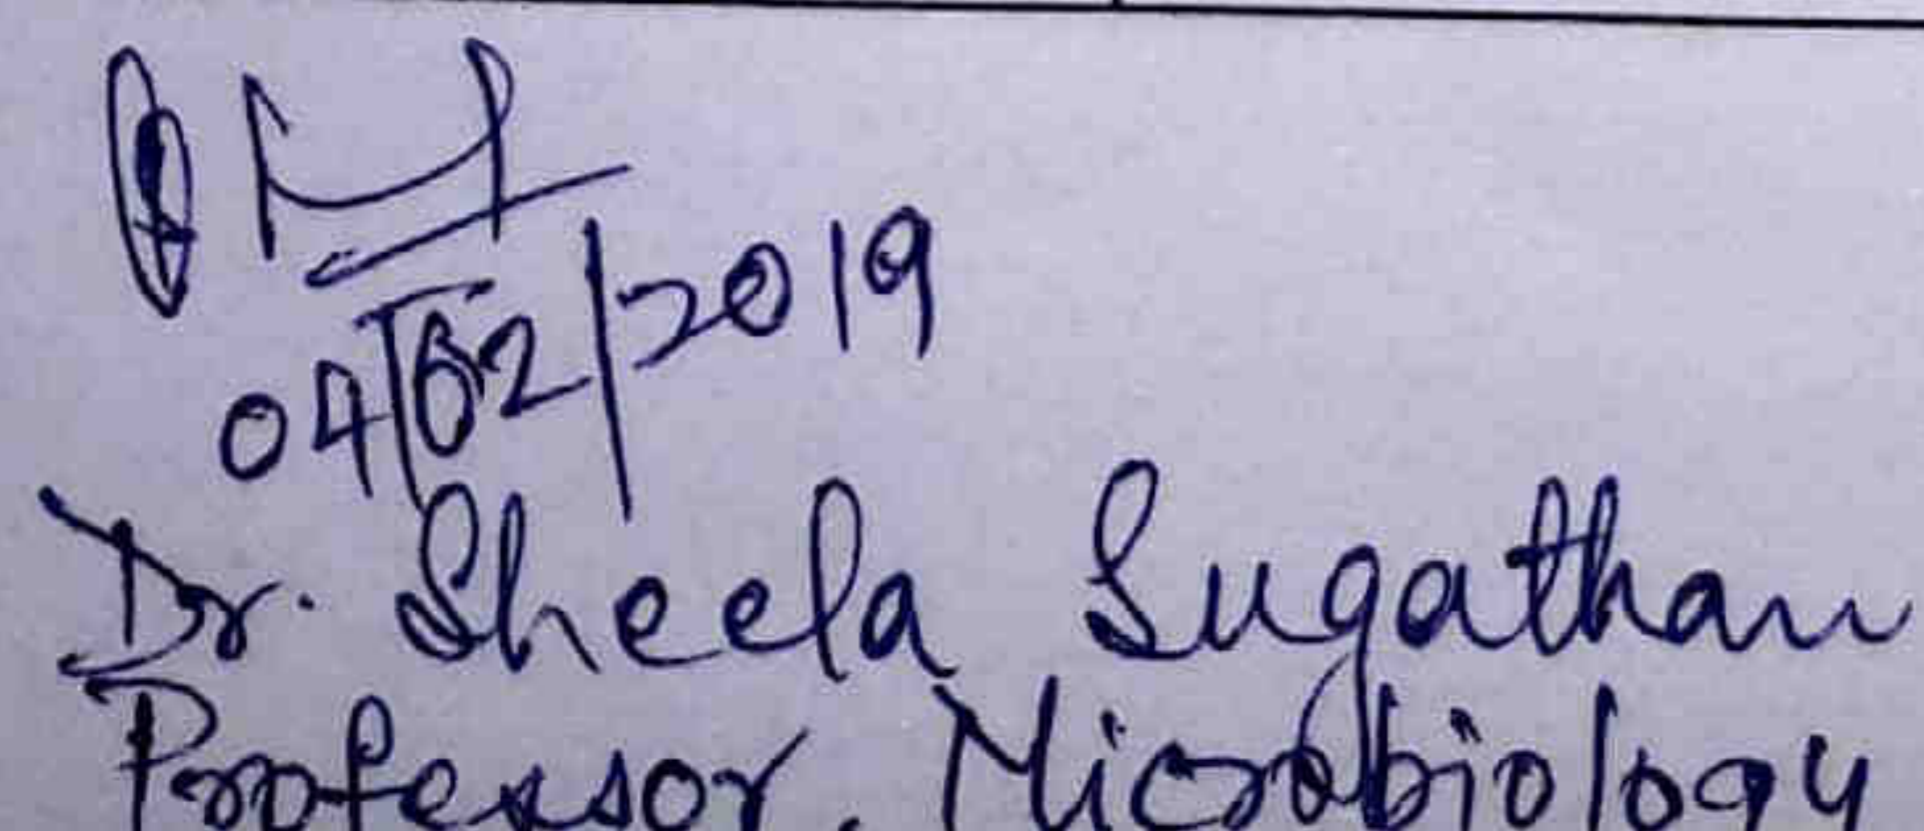 04/02/2019
Dr. Sheela Sugathan
Professor, Microbiology